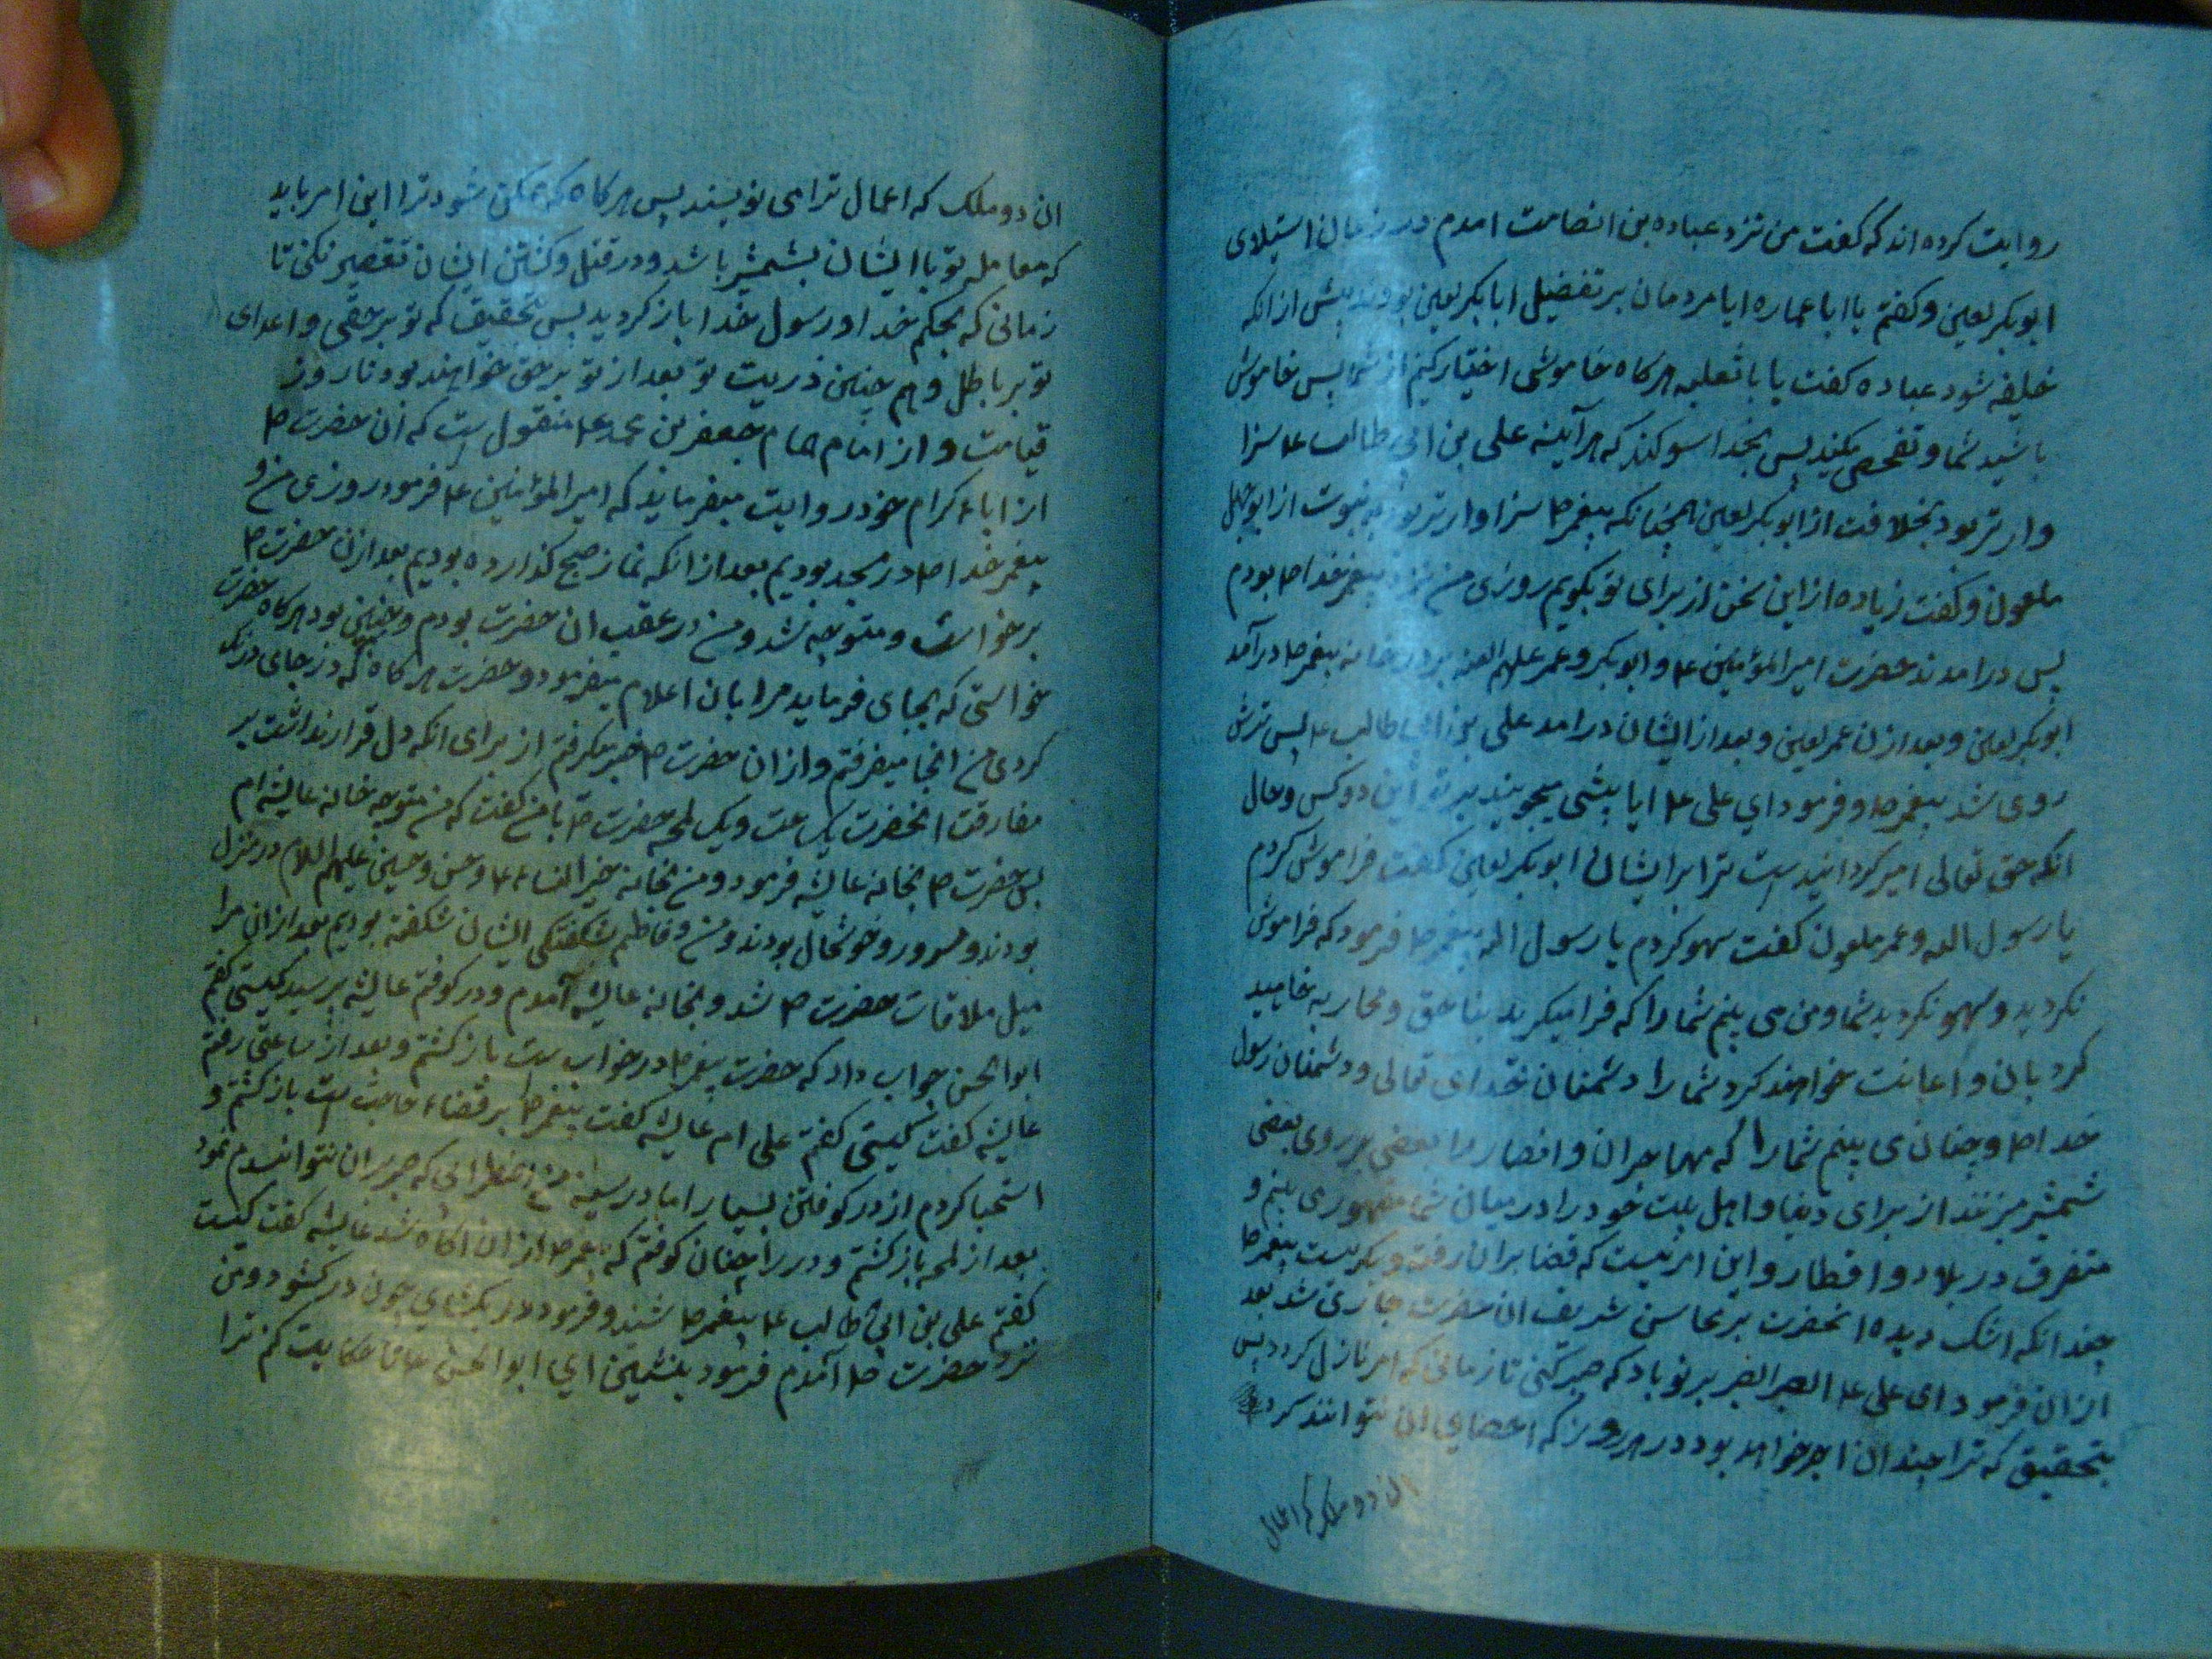 روایت کرده اند که گفت من نزد عباده بن الصامت امدم در زمان استیلای
ابوبکر لعین و کفتم یا ابا عماره ایا مردمان بر تفضیل ابابکر لعین بودند پیش از انکه
خلیفه شود عباده کفت یا با ثعلبه هرکاه خاموشی اختیار کنیم از شما پس خاموش
باشید شما و تفحص مکنید پس بخدا سوکند که هر آینه علی بن ابی طالب ع سزا
وار تر بود بخلافت از ابوبکر لعین همچنانکه پیغمبر ص سزاوار تر بود به نبوت از ابوجهل
ملعون و کفت زیاده از این سخن از برای تو بکویم روزی من نزد پیغمبر خدا ص بودم
پس در امدند حضرت امیر المؤمنین ع و ابوبکر و عمر علیهم العنه بر در خانه پیغمبر ص در آمد
ابوبکر لعین و بعد ازن عمر لعین و بعد از ایشان در امد علی بن ابی طالب ع پس ترش
روی شد پیغمبر ص و فرمود ای علی ع ایا پیشی میجویند بر تو این دو کس و حال
انکه حق تعالی امیر کردانیده است ترا بر ایشان ابوبکر لعین کفت فراموش کردم
یا رسول الله و عمر ملعون کفت سهو کردم یا رسول الله پیغمبر ص فرمود که فراموش
نکردید و سهو نکردید شما و من می بینم شما را که فرا میکرید بنا حق و محاربه خاهید
کرد بان و اعانت خواهند کرد شما را دشمنان خدای تعالی و دشمنان رسول
خدا ص و چنان می بینم شما را که مهاجران و انصار را بعضی بر روی بعضی
شمشیر میزنند از برای دنیا و اهل بیت خود را در میان شما مقهور می بینم و
متفرق در بلاد و اقطار و این امریست که قضا بران رفته و بکریست پیغمبر ص
چندانکه اشک دیده انحضرت بر محاسن شریف ان حضرت جاری شد بعد
ازان فرمود ای علی ع الصبر الصبر بر تو باد که صبر کنی تا زمانی که امر نازل کردد پس
بتحقیق که ترا چندان اجر خواهد بود در هر روز که احصای ان نتوانند کرد
ان دو ملک که اعمال
ان دو ملک که اعمال ترا می نویسند پس هرکاه که ممکن شود ترا این امر باید
که معامله تو با ایشان بشمشیر باشد و در قتل و کشتن ایشان تقصیر نکنی تا
زمانی که بحکم خدا و رسول خدا باز کردید پس تحقیق که تو بر حقی و اعدای
تو بر باطل و هم چنین ذریت تو بعد از تو بر حق خواهند بود تا روز
قیامت و از امام همام جعفر بن محمد ع منقول است که ان حضرت ص
از اباء کرام خود روایت میفرماید که امیر المؤمنین ع فرمود روزی من و
پیغمبر خدا ص در مسجد بودیم بعد از انکه نماز صبح کذارده بودیم بعد ازن حضرت ص
برخواست و متوجه شد و من در عقب ان حضرت بودم و چنین بود هرکاه حضرت
خواستی که بجای فرماید مرا بان اعلام میفرمود و حضرت هرکاه که در جای درنک
کردی من انجا میفرفتم و از ان حضرت ص خبر میکرفتم از برای انکه دل قرار نداشت بر
مفارقت انحضرت یک ساعت و یک لمحه حضرت ص با من کفت که من متوجه خانه عایشه ام
پس حضرت ص بخانه عایشه فرمود و من بخانه خیر النساء ع و حسن و حسین علیهم السلام در منزل
بودند و مسرور و خوشحال بودند و من و فاطمه بشکفتکی ایشان شکفته بودیم بعد ازان مرا
میل ملاقات حضرت ص شد و بخانه عایشه آمدم و در کوفتم عایشه پرسید کیستی کفتم
ابوالحسن جواب داد که حضرت پیغمبر ص در خواب ست باز کشتم و بعد از ساعتی رفتم
عایشه کفت کیستی کفتم علی ام عایشه کفت پیغمبر ص بر قضاء حاجت است باز کشتم و
استحیا کردم از در کوفتن بسیار اما در سینه من اضطرابی که صبر بران نتوانستم نمود
بعد از لمحه باز کشتم و در را چنان کوفتم که پیغمبر ص ازان اکاه شد عایشه کفت کیست
کفتم علی بن ابی طالب ع پیغمبر ص شنید و فرمود در بکشای چون در کشود و من
نزد حضرت ص آمدم فرمود بنشین ای ابوالحسن تا حکایت کنم ترا